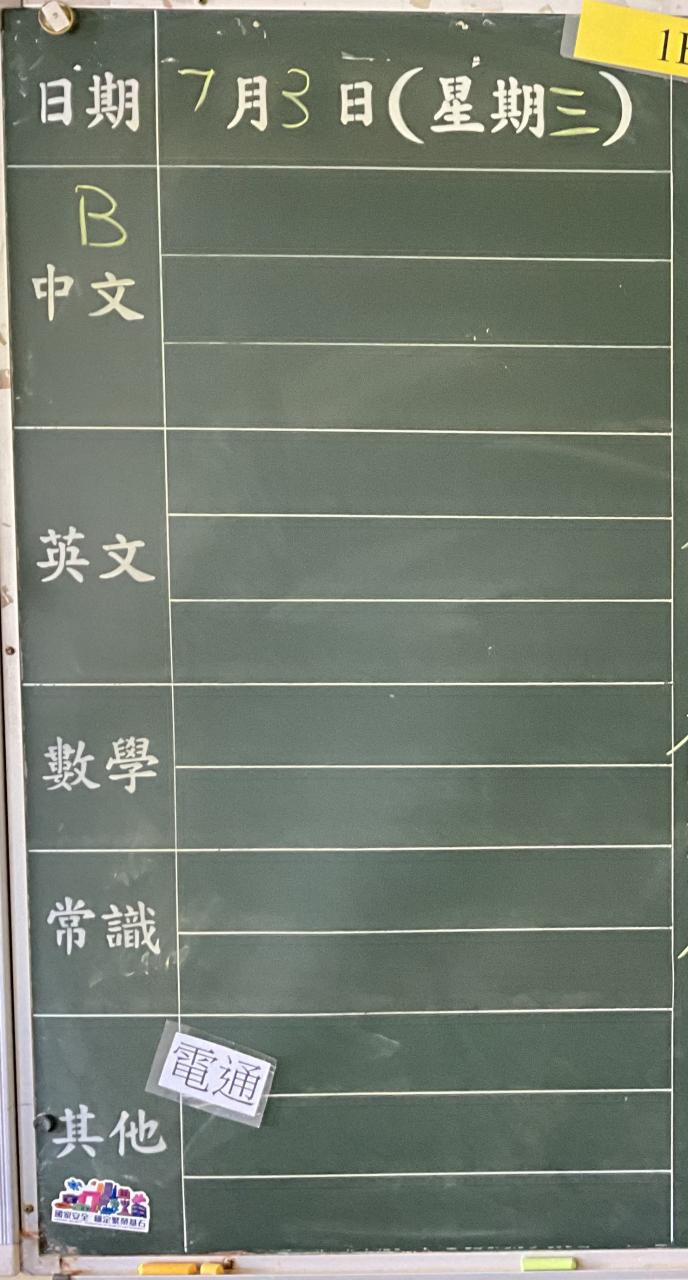 日期 7月3日(星期三)
B
中文
英文
數學
常識
電通
其他
國家安全 穩定繁榮基石